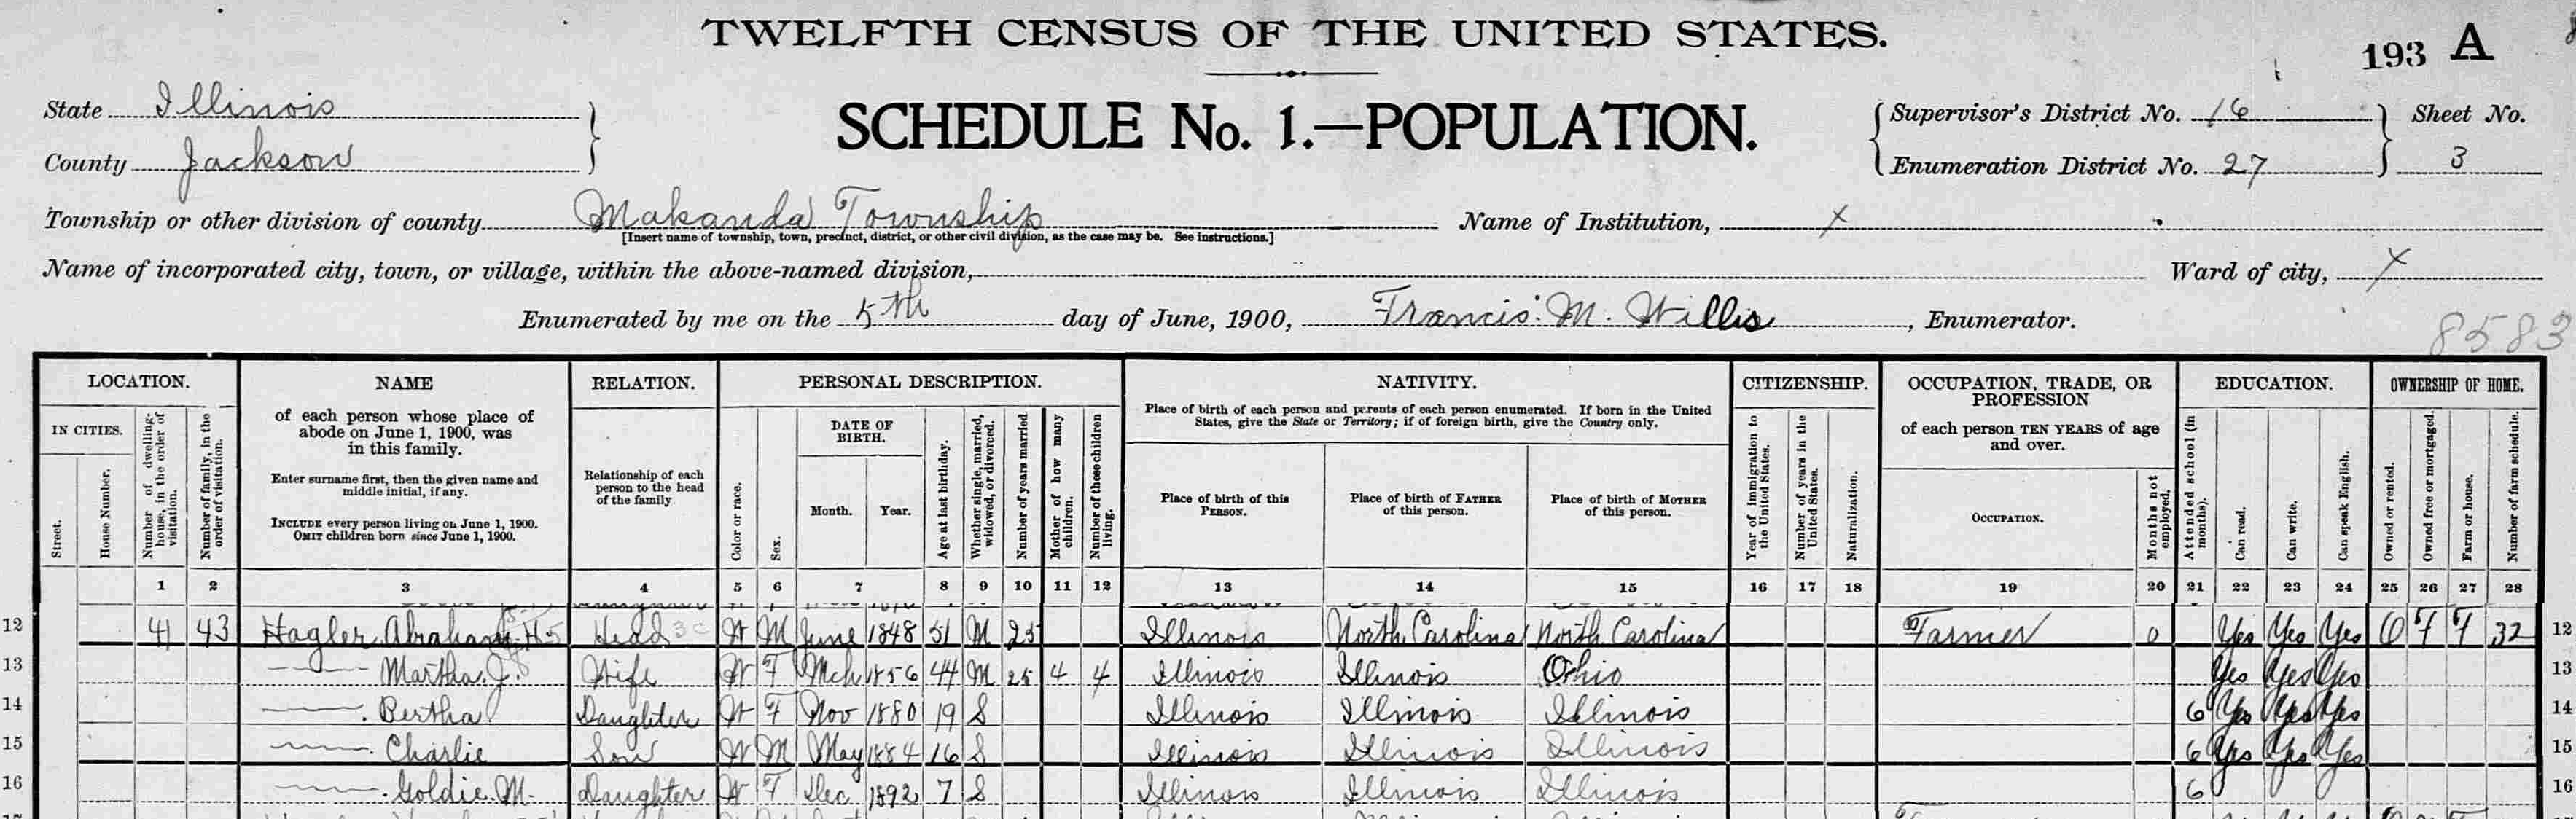 TWELFTH CENSUS OF THE UNITED STATES.
193 A
State Illinois
County Jackson
SCHEDULE No. 1.—POPULATION.
Supervisor's District No. 16
Enumeration District No. 27
Sheet No.
3
Township or other division of county Makanda Township
[Insert name of township, town, precinct, district, or other civil division, as the case may be. See instructions.]
Name of Institution, X
Name of incorporated city, town, or village, within the above-named division,
Ward of city, X
Enumerated by me on the 5th day of June, 1900, Francis M. Willis, Enumerator.
8583
LOCATION.
IN CITIES.
Street.
House Number.
Number of dwelling-house, in the order of visitation.
Number of family, in the order of visitation.
NAME
of each person whose place of
abode on June 1, 1900, was
in this family.
Enter surname first, then the given name and
middle initial, if any.
INCLUDE every person living on June 1, 1900.
OMIT children born since June 1, 1900.
RELATION.
Relationship of each
person to the head
of the family.
PERSONAL DESCRIPTION.
Color or race.
Sex.
DATE OF
BIRTH.
Month.
Year.
Age at last birthday.
Whether single, married, widowed, or divorced.
Number of years married.
Mother of how many children.
Number of these children living.
NATIVITY.
Place of birth of each person and parents of each person enumerated. If born in the United
States, give the State or Territory; if of foreign birth, give the Country only.
Place of birth of this
PERSON.
Place of birth of FATHER
of this person.
Place of birth of MOTHER
of this person.
CITIZENSHIP.
Year of immigration to the United States.
Number of years in the United States.
Naturalization.
OCCUPATION, TRADE, OR
PROFESSION
of each person TEN YEARS of age
and over.
OCCUPATION.
Months not employed.
EDUCATION.
Attended school (in months).
Can read.
Can write.
Can speak English.
OWNERSHIP OF HOME.
Owned or rented.
Owned free or mortgaged.
Farm or house.
Number of farm schedule.
1 2 3 4 5 6 7 8 9 10 11 12 13 14 15 16 17 18 19 20 21 22 23 24 25 26 27 28
12 41 43 Hagler, Abraham Head W M June 1848 51 M 25 Illinois North Carolina North Carolina Farmer 0 Yes Yes Yes O F F 32 12
13 Martha J. Wife W F Mch 1856 44 M 25 4 4 Illinois Illinois Ohio Yes Yes Yes 13
14 Bertha Daughter W F Nov 1880 19 S Illinois Illinois Illinois 6 Yes Yes Yes 14
15 Charlie Son W M May 1884 16 S Illinois Illinois Illinois 6 Yes Yes Yes 15
16 Goldie M. Daughter W F Dec 1892 7 S Illinois Illinois Illinois 6 16